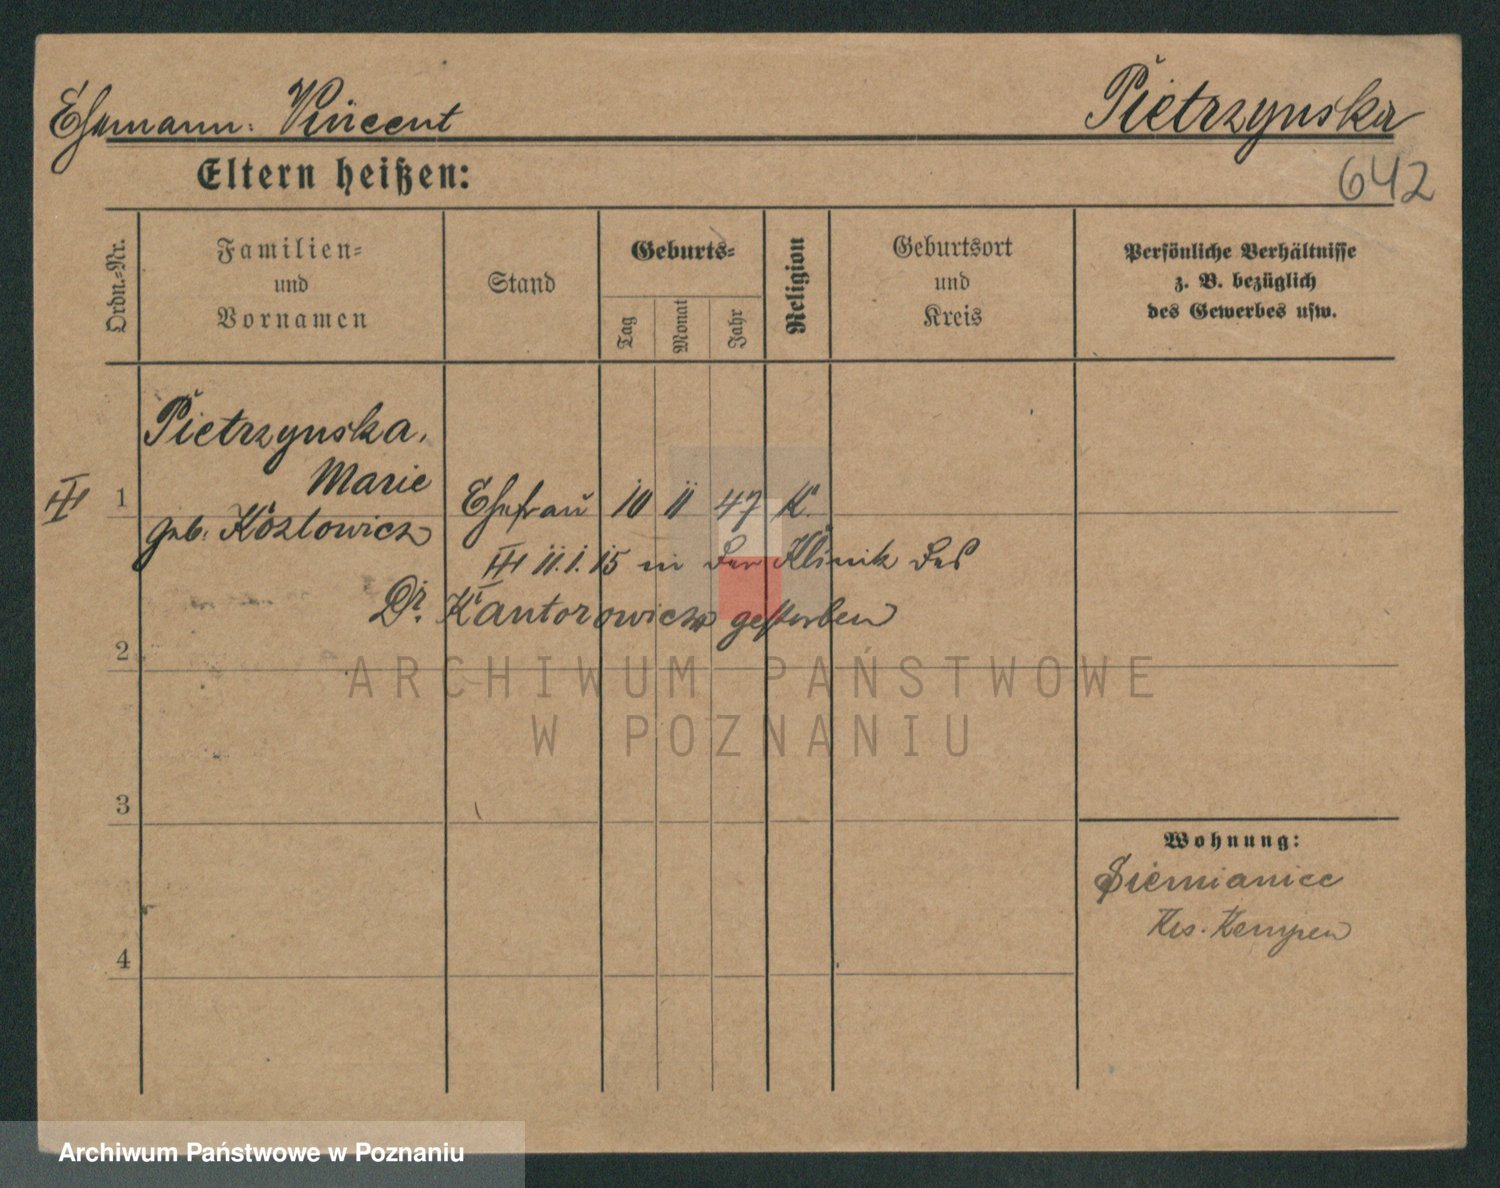 Ehemann: Vincent
Pietrzynska
642
Eltern heißen:
Ordn.-Nr.
Familien-
und
Vornamen
Stand
Geburts-
Tag
Monat
Jahr
Religion
Geburtsort
und
Kreis
Persönliche Verhältnisse
z. B. bezüglich
des Gewerbes usw.
Pietrzynska,
Marie
1
geb. Kozlowicz
Ehefrau 10 11 47 K.
11.1.15 in der Klinik des
Dr. Kantorowicz gestorben
2
ARCHIWUM PAŃSTWOWE
W POZNANIU
3
Wohnung:
Siemianice
Krs. Kempen
4
Archiwum Państwowe w Poznaniu